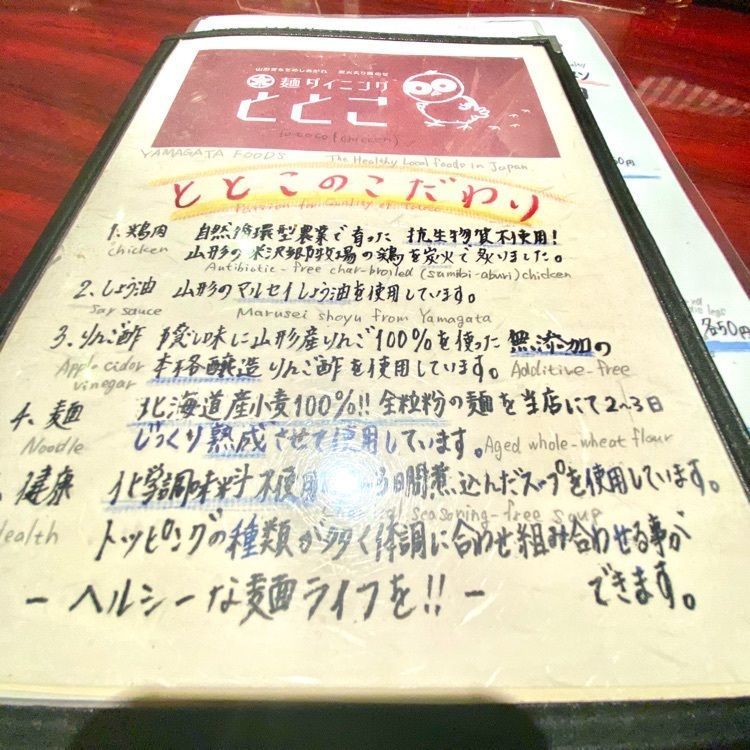 麺ダイニング
ととこ
totoco (chicken)
YAMAGATA FOODS The Healthy Local foods in Japan
ととこのこだわり
Passion for Quality of
1. 鶏肉 自然循環型農業で育った 抗生物質不使用!
chicken 山形の米沢郷牧場の鶏を炭火で炙りました。
Antibiotic-free char-broiled (sumibi-aburi) chicken
2. しょう油 山形のマルセイしょう油を使用しています。
Soy sauce Marusei shoyu from Yamagata
3. りんご酢 隠し味に山形産りんご100%を使った 無添加の
Apple cidar vinegar 本格醸造りんご酢を使用しています。 Additive-free
4. 麺 北海道産小麦100%!! 全粒粉の麺を当店にて2~3日
Noodle じっくり熟成させて使用しています。Aged whole-wheat flour
健康 化学調味料不使用 日間煮込んだスープを使用しています。
Health seasoning-free soup
トッピングの種類が多く体調に合わせ組み合わせる事が
できます。
- ヘルシーな麺ライフを!! -
各50円